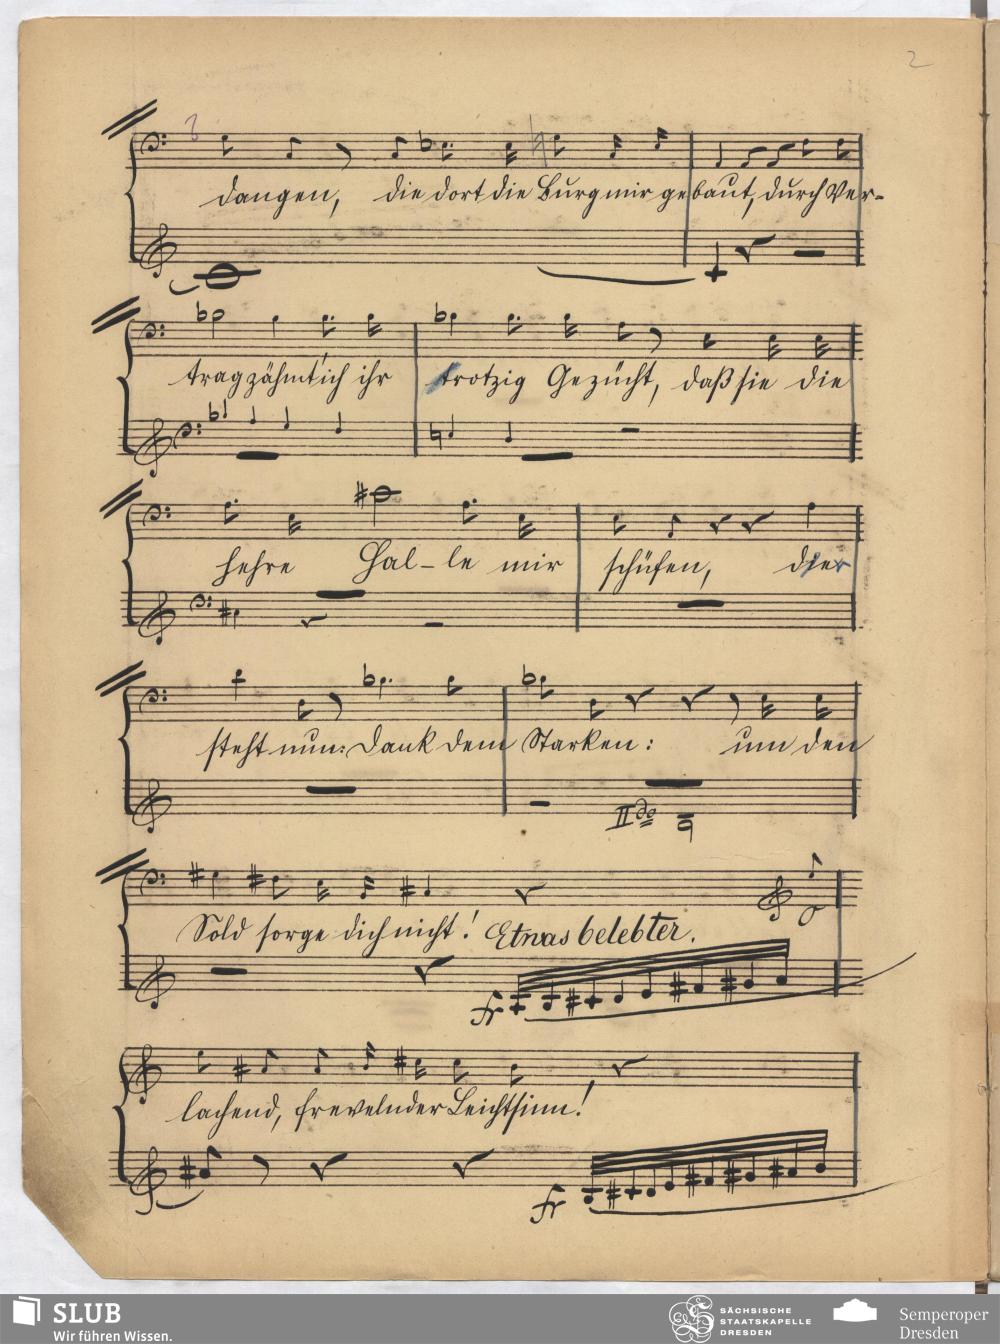 2
dangen, die dort die Burg mir gebaut, durch Ver-
trag zähmt' ich ihr trotzig Gezücht, daß sie die
hehre Hal-le mir schüfen, die
steht nun: Dank dem Starken: um den
IIdo
Sold sorge dich nicht! Etwas belebter.
fr
lachend, frevelnder Leichtsinn!
fr
SLUB
Wir führen Wissen.
SÄCHSISCHE
STAATSKAPELLE
DRESDEN
Semperoper
Dresden